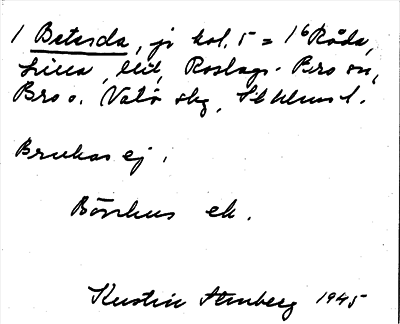 1 Betesda, jr kol. 5 = 1⁶ Råda,
Lilla, lht, Roslags-Bro sn,
Bro o. Vätö skg, Sthlms l.
Brukas ej.
Börshus ek.
Kerstin Stenberg 1945